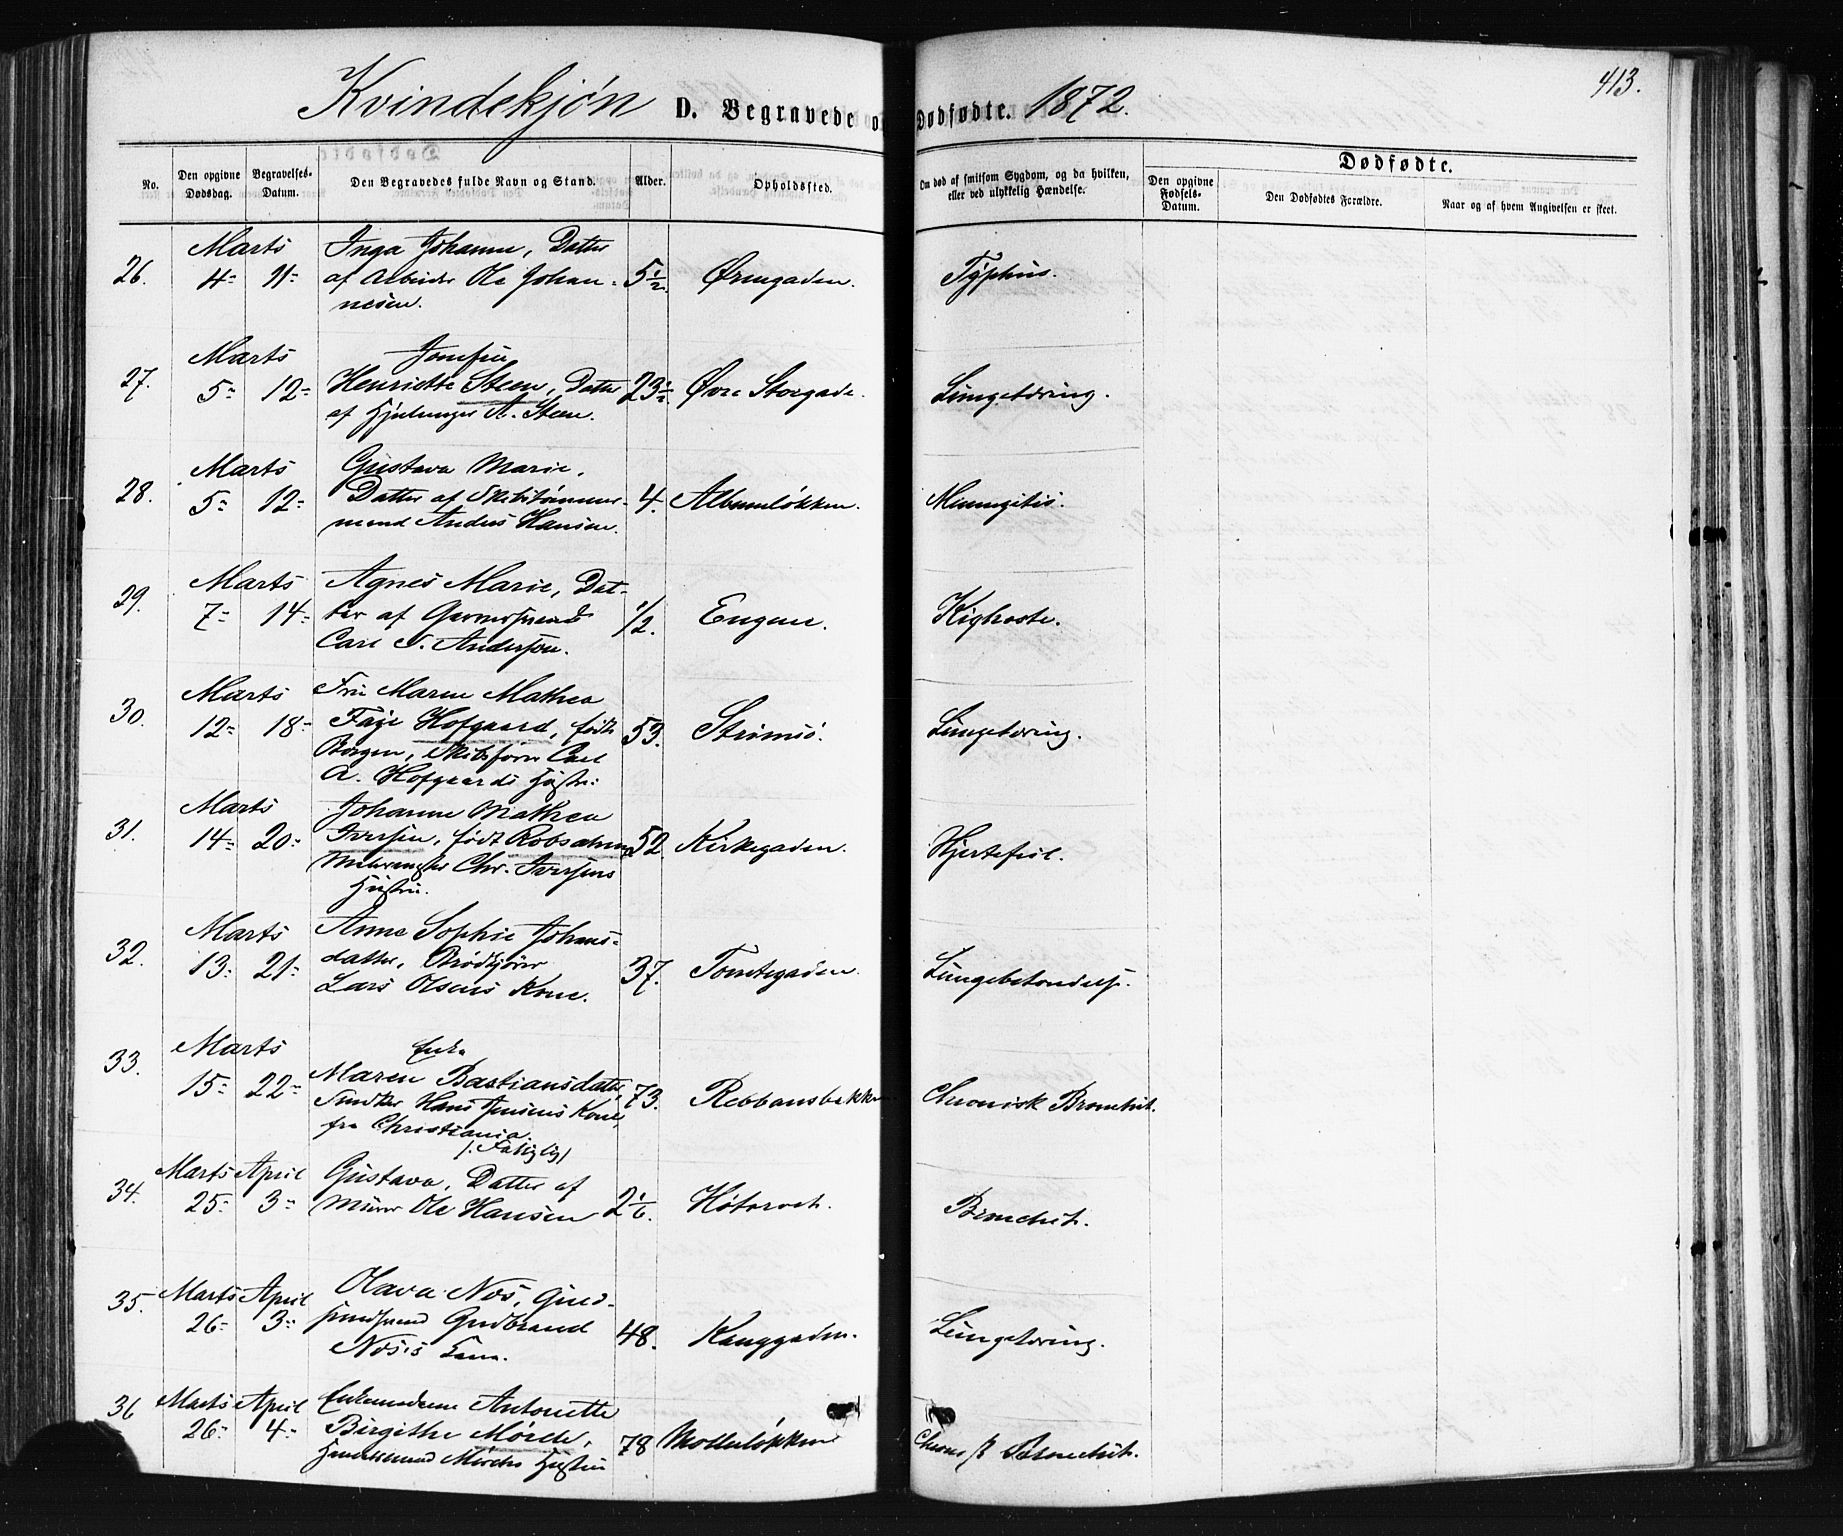 413.
Kvindekjøn D. Begravede og Dødfødte. 1872.
No. Den opgivne Dødsdag. Begravelses-Datum. Den Begravedes fulde Navn og Stand. Alder. Opholdssted. Om død af smitsom Sygdom, og da hvilken, eller ved ulykkelig Hændelse. Dødfødte.
Den opgivne Fødsels-Datum. Den Dødfødtes Forældre. Naar og af hvem Angivelsen er skeet.
Marts Inga Johanne, Datter
26. 4- 11- af Arbeider Ole Johan- 5½. Ørengaden. Typhus.
nesen.
Marts Josefine
27. 5- 12- Henriette Steen, Datter 23½ Øvre Storgade. Lungetæring.
af A. Steen.
Marts Gustava Marie,
28. 5- 12- Datter af Skibstømmer- 4. Albumløkken. Meningitis.
mand Anders Hansen.
Marts Agnes Marie, Dat-
29. 7- 14- ter af Garversvend ½. Engene. Kighoste.
Carl J. Anderssen.
Marts Fru Maren Mathea
30. 12- 18- Faye Hofgaard, født 53. Strømsö. Lungetæring.
Borgen, Skibsfører Carl
A. Hofgaards Hustru.
Marts Johanne Mathea
31. 14- 20- Iversen, født Robsahm 52. Kirkegaden. Hjertefeil.
Chr. Iversens
Hustru.
Marts Anne Sophie Johans-
32. 13- 21- datter, Brødkjører 37. Tomtegaden. Lungebetændelse.
Lars Olsens Kone.
Marts Enke
33. 15- 22- Maren Bastiansdatter, 73. Rebbansbakken Chronisk Bronchit.
Snedker Hans Jensens Kone
fra Christiania.
(Fattiglig)
Marts April Gustava, Datter af
34. 25- 3- Murer Ole Hansen 2⅙. Høtorvet. Bronchit.
Marts April Olava Nos, Guld-
35. 26- 3- smedsvend Gudbrand 48. Langgaden. Lungetæring.
Nos's Kone.
Marts April Enkemadame Antonette
36 26- 4- Birgithe Mörch, 78 Møllerløkken Bronchit.
Mörchs Hustru